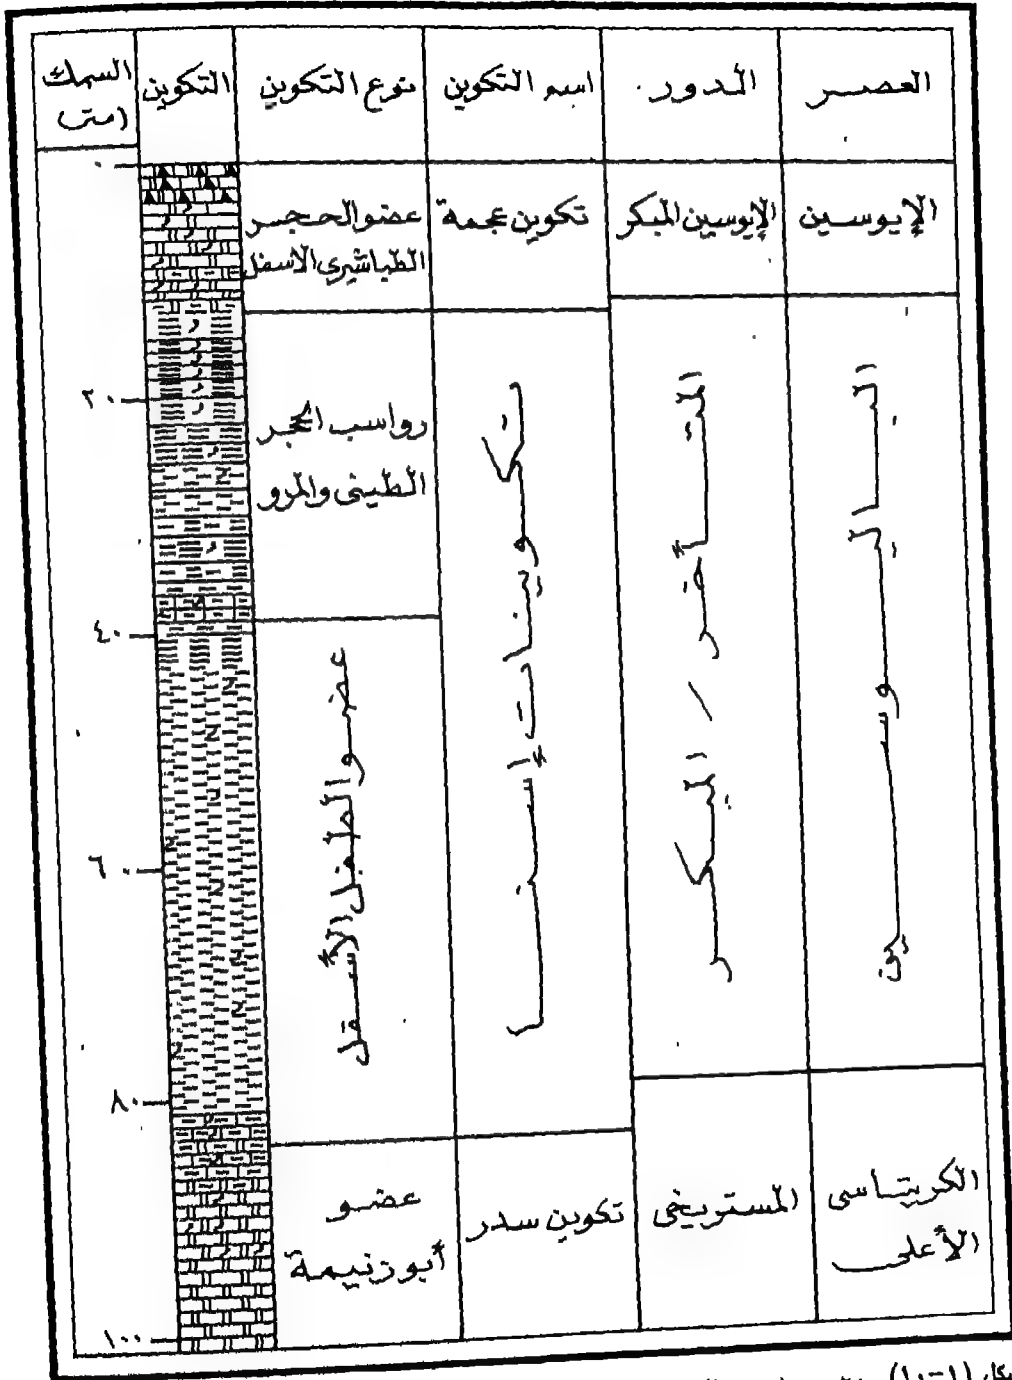 العصر
الدور
اسم التكوين
نوع التكوين
التكوين
السمك
(متر)
الإيوسين
الإيوسين المبكر
تكوين عجمة
عضو الحجر
الطباشيري الاسفل
الباليوسين
المتأخر / المبكر
تكوينات إسنا
رواسب الحجر
الطيني والمرو
عضو الطفل الأسفل
الكريتاسى
الأعلى
المستريخي
تكوين سدر
عضو
أبو زنيمة
٠
٢٠
٤٠
٦٠
٨٠
١٠٠
شكل (١-١٠)